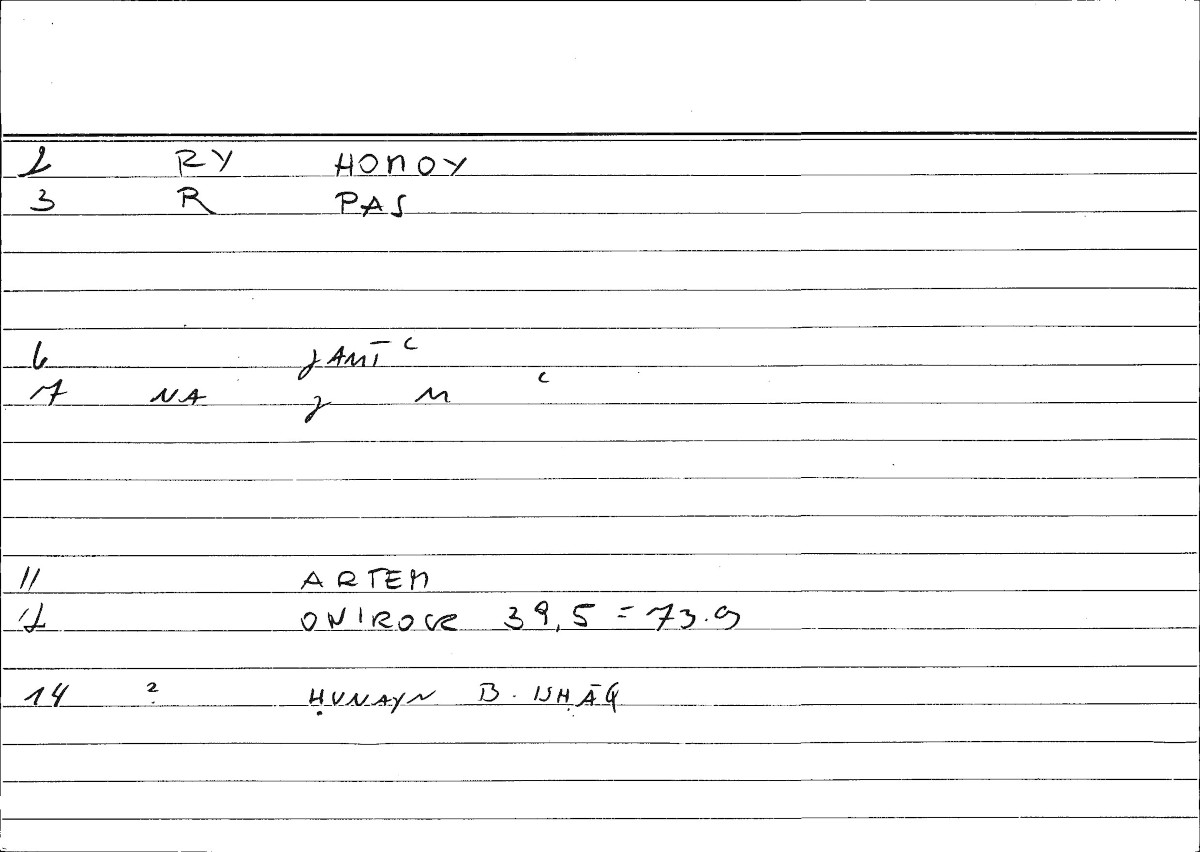 2 RY HOMOY
3 R PAS
6 ǧAMĪʿ
7 NA ǧ M ʿ
11 ARTEM
12 ONIROCR 39,5 = 73.9
14 2 ḤUNAYN B. ISḤĀQ